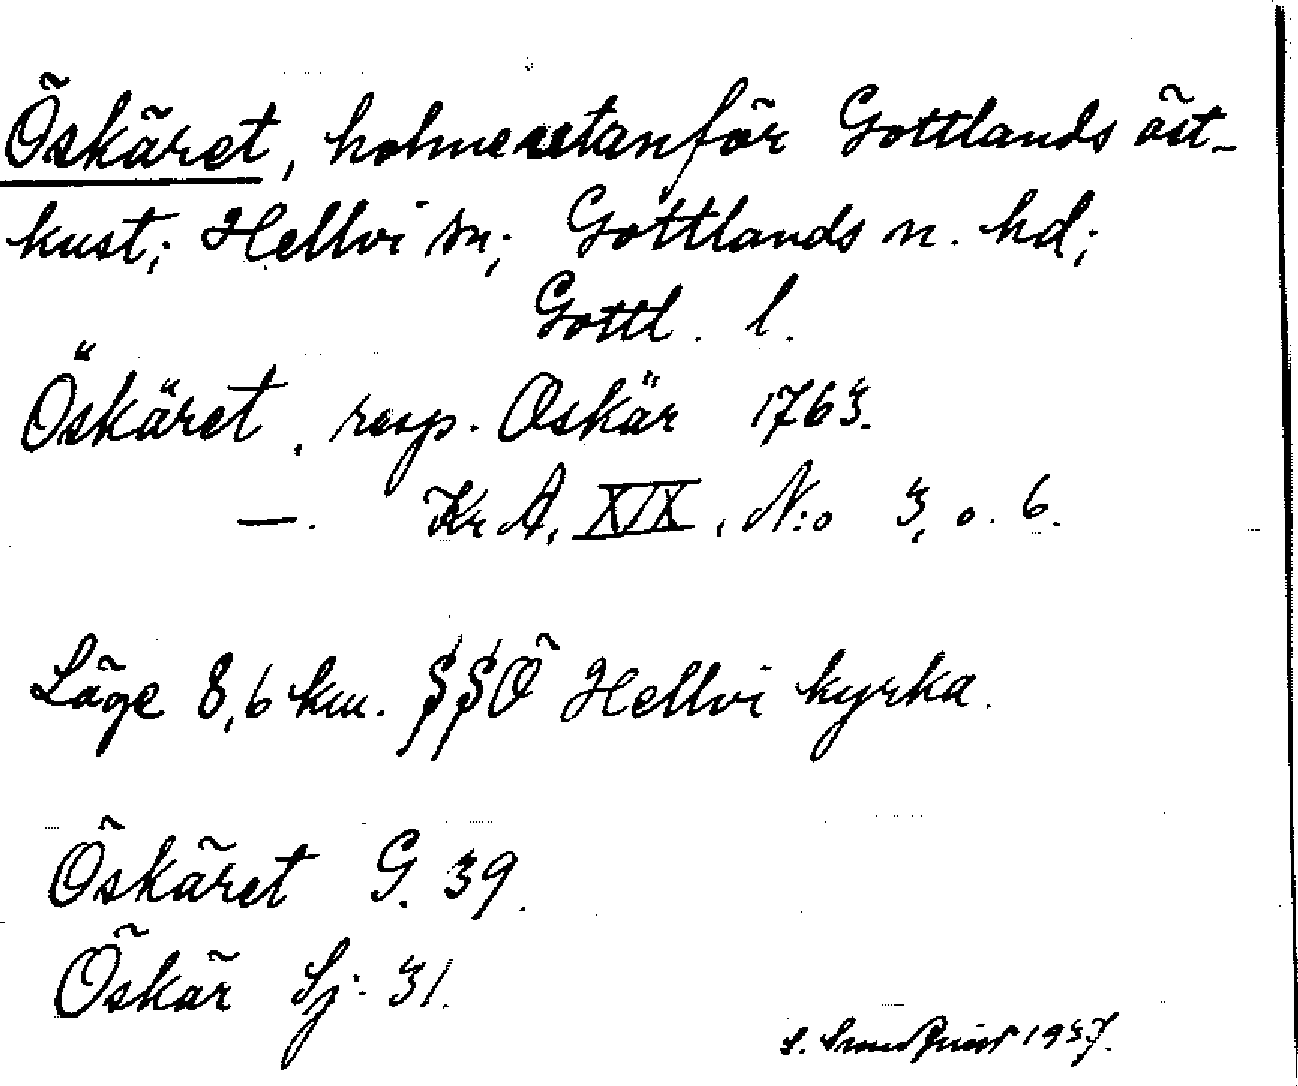 Öskäret, holme utanför Gottlands öst-
kust; Hellvi sn; Gottlands n. hd;
Gottl. l.
Öskäret, resp. Oskär 1763.
—. Kr A, XIX, N:o 3, o. 6.
Läge 8,6 km. SSÖ Hellvi kyrka.
Öskäret G. 39.
Öskär Sj: 31.
1937.